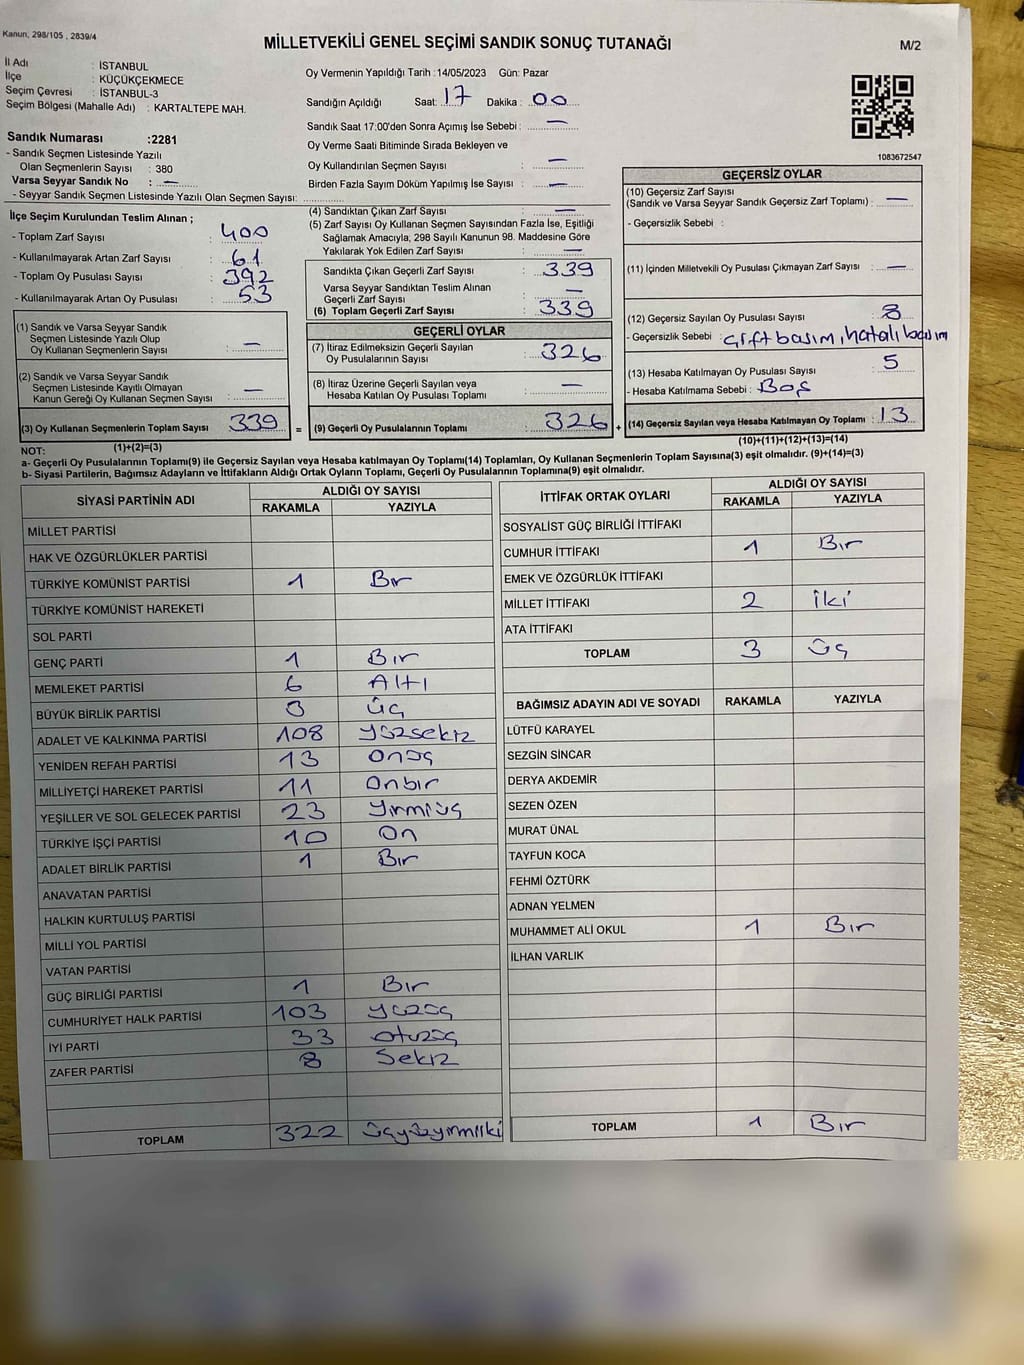 Kanun, 298/105 , 2839/4
MİLLETVEKİLİ GENEL SEÇİMİ SANDIK SONUÇ TUTANAĞI
M/2
İl Adı : İSTANBUL
İlçe : KÜÇÜKÇEKMECE
Seçim Çevresi : İSTANBUL-3
Seçim Bölgesi (Mahalle Adı) : KARTALTEPE MAH.
Sandık Numarası :2281
- Sandık Seçmen Listesinde Yazılı
Olan Seçmenlerin Sayısı : 380
Varsa Seyyar Sandık No : —
- Seyyar Sandık Seçmen Listesinde Yazılı Olan Seçmen Sayısı:
Oy Vermenin Yapıldığı Tarih :14/05/2023 Gün: Pazar
Sandığın Açıldığı Saat: 17 Dakika : 00
Sandık Saat 17:00'den Sonra Açımış İse Sebebi : —
Oy Verme Saati Bitiminde Sırada Bekleyen ve
Oy Kullandırılan Seçmen Sayısı : —
Birden Fazla Sayım Döküm Yapılmış İse Sayısı : —
1083672547
İlçe Seçim Kurulundan Teslim Alınan ;
- Toplam Zarf Sayısı : 400
- Kullanılmayarak Artan Zarf Sayısı : 61
- Toplam Oy Pusulası Sayısı : 392
- Kullanılmayarak Artan Oy Pusulası : 53
(1) Sandık ve Varsa Seyyar Sandık
Seçmen Listesinde Yazılı Olup
Oy Kullanan Seçmenlerin Sayısı : —
(2) Sandık ve Varsa Seyyar Sandık
Seçmen Listesinde Kayıtlı Olmayan
Kanun Gereği Oy Kullanan Seçmen Sayısı : —
(3) Oy Kullanan Seçmenlerin Toplam Sayısı 339
(1)+(2)=(3)
(4) Sandıktan Çıkan Zarf Sayısı : —
(5) Zarf Sayısı Oy Kullanan Seçmen Sayısından Fazla İse, Eşitliği
Sağlamak Amacıyla, 298 Sayılı Kanunun 98. Maddesine Göre
Yakılarak Yok Edilen Zarf Sayısı : —
Sandıkta Çıkan Geçerli Zarf Sayısı : 339
Varsa Seyyar Sandıktan Teslim Alınan
Geçerli Zarf Sayısı : —
(6) Toplam Geçerli Zarf Sayısı : 339
GEÇERLİ OYLAR
(7) İtiraz Edilmeksizin Geçerli Sayılan
Oy Pusulalarının Sayısı : 326
(8) İtiraz Üzerine Geçerli Sayılan veya
Hesaba Katılan Oy Pusulası Toplamı : —
= (9) Geçerli Oy Pusulalarının Toplamı : 326 +
GEÇERSİZ OYLAR
(10) Geçersiz Zarf Sayısı
(Sandık ve Varsa Seyyar Sandık Geçersiz Zarf Toplamı) : —
- Geçersizlik Sebebi :
(11) İçinden Milletvekili Oy Pusulası Çıkmayan Zarf Sayısı : —
(12) Geçersiz Sayılan Oy Pusulası Sayısı : 8
- Geçersizlik Sebebi : çift basım, hatalı basım
(13) Hesaba Katılmayan Oy Pusulası Sayısı : 5
- Hesaba Katılmama Sebebi : Boş
(14) Geçersiz Sayılan veya Hesaba Katılmayan Oy Toplamı : 13
(10)+(11)+(12)+(13)=(14)
NOT:
a- Geçerli Oy Pusulalarının Toplamı(9) ile Geçersiz Sayılan veya Hesaba katılmayan Oy Toplamı(14) Toplamları, Oy Kullanan Seçmenlerin Toplam Sayısına(3) eşit olmalıdır. (9)+(14)=(3)
b- Siyasi Partilerin, Bağımsız Adayların ve İttifakların Aldığı Ortak Oyların Toplamı, Geçerli Oy Pusulalarının Toplamına(9) eşit olmalıdır.
SİYASİ PARTİNİN ADI ALDIĞI OY SAYISI
RAKAMLA YAZIYLA
MİLLET PARTİSİ
HAK VE ÖZGÜRLÜKLER PARTİSİ
TÜRKİYE KOMÜNİST PARTİSİ 1 Bir
TÜRKİYE KOMÜNİST HAREKETİ
SOL PARTİ
GENÇ PARTİ 1 Bir
MEMLEKET PARTİSİ 6 Altı
BÜYÜK BİRLİK PARTİSİ 3 üç
ADALET VE KALKINMA PARTİSİ 108 yüzsekiz
YENİDEN REFAH PARTİSİ 13 Onüç
MİLLİYETÇİ HAREKET PARTİSİ 11 Onbir
YEŞİLLER VE SOL GELECEK PARTİSİ 23 yirmiüç
TÜRKİYE İŞÇİ PARTİSİ 10 On
ADALET BİRLİK PARTİSİ 1 Bir
ANAVATAN PARTİSİ
HALKIN KURTULUŞ PARTİSİ
MİLLİ YOL PARTİSİ
VATAN PARTİSİ
GÜÇ BİRLİĞİ PARTİSİ 1 Bir
CUMHURİYET HALK PARTİSİ 103 yüzüç
İYİ PARTİ 33 otuzüç
ZAFER PARTİSİ 8 Sekiz
TOPLAM 322 üçyüzyirmiiki
İTTİFAK ORTAK OYLARI ALDIĞI OY SAYISI
RAKAMLA YAZIYLA
SOSYALİST GÜÇ BİRLİĞİ İTTİFAKI
CUMHUR İTTİFAKI 1 Bir
EMEK VE ÖZGÜRLÜK İTTİFAKI
MİLLET İTTİFAKI 2 iki
ATA İTTİFAKI
TOPLAM 3 üç
BAĞIMSIZ ADAYIN ADI VE SOYADI RAKAMLA YAZIYLA
LÜTFÜ KARAYEL
SEZGİN SİNCAR
DERYA AKDEMİR
SEZEN ÖZEN
MURAT ÜNAL
TAYFUN KOCA
FEHMİ ÖZTÜRK
ADNAN YELMEN
MUHAMMET ALİ OKUL 1 Bir
İLHAN VARLIK
TOPLAM 1 Bir